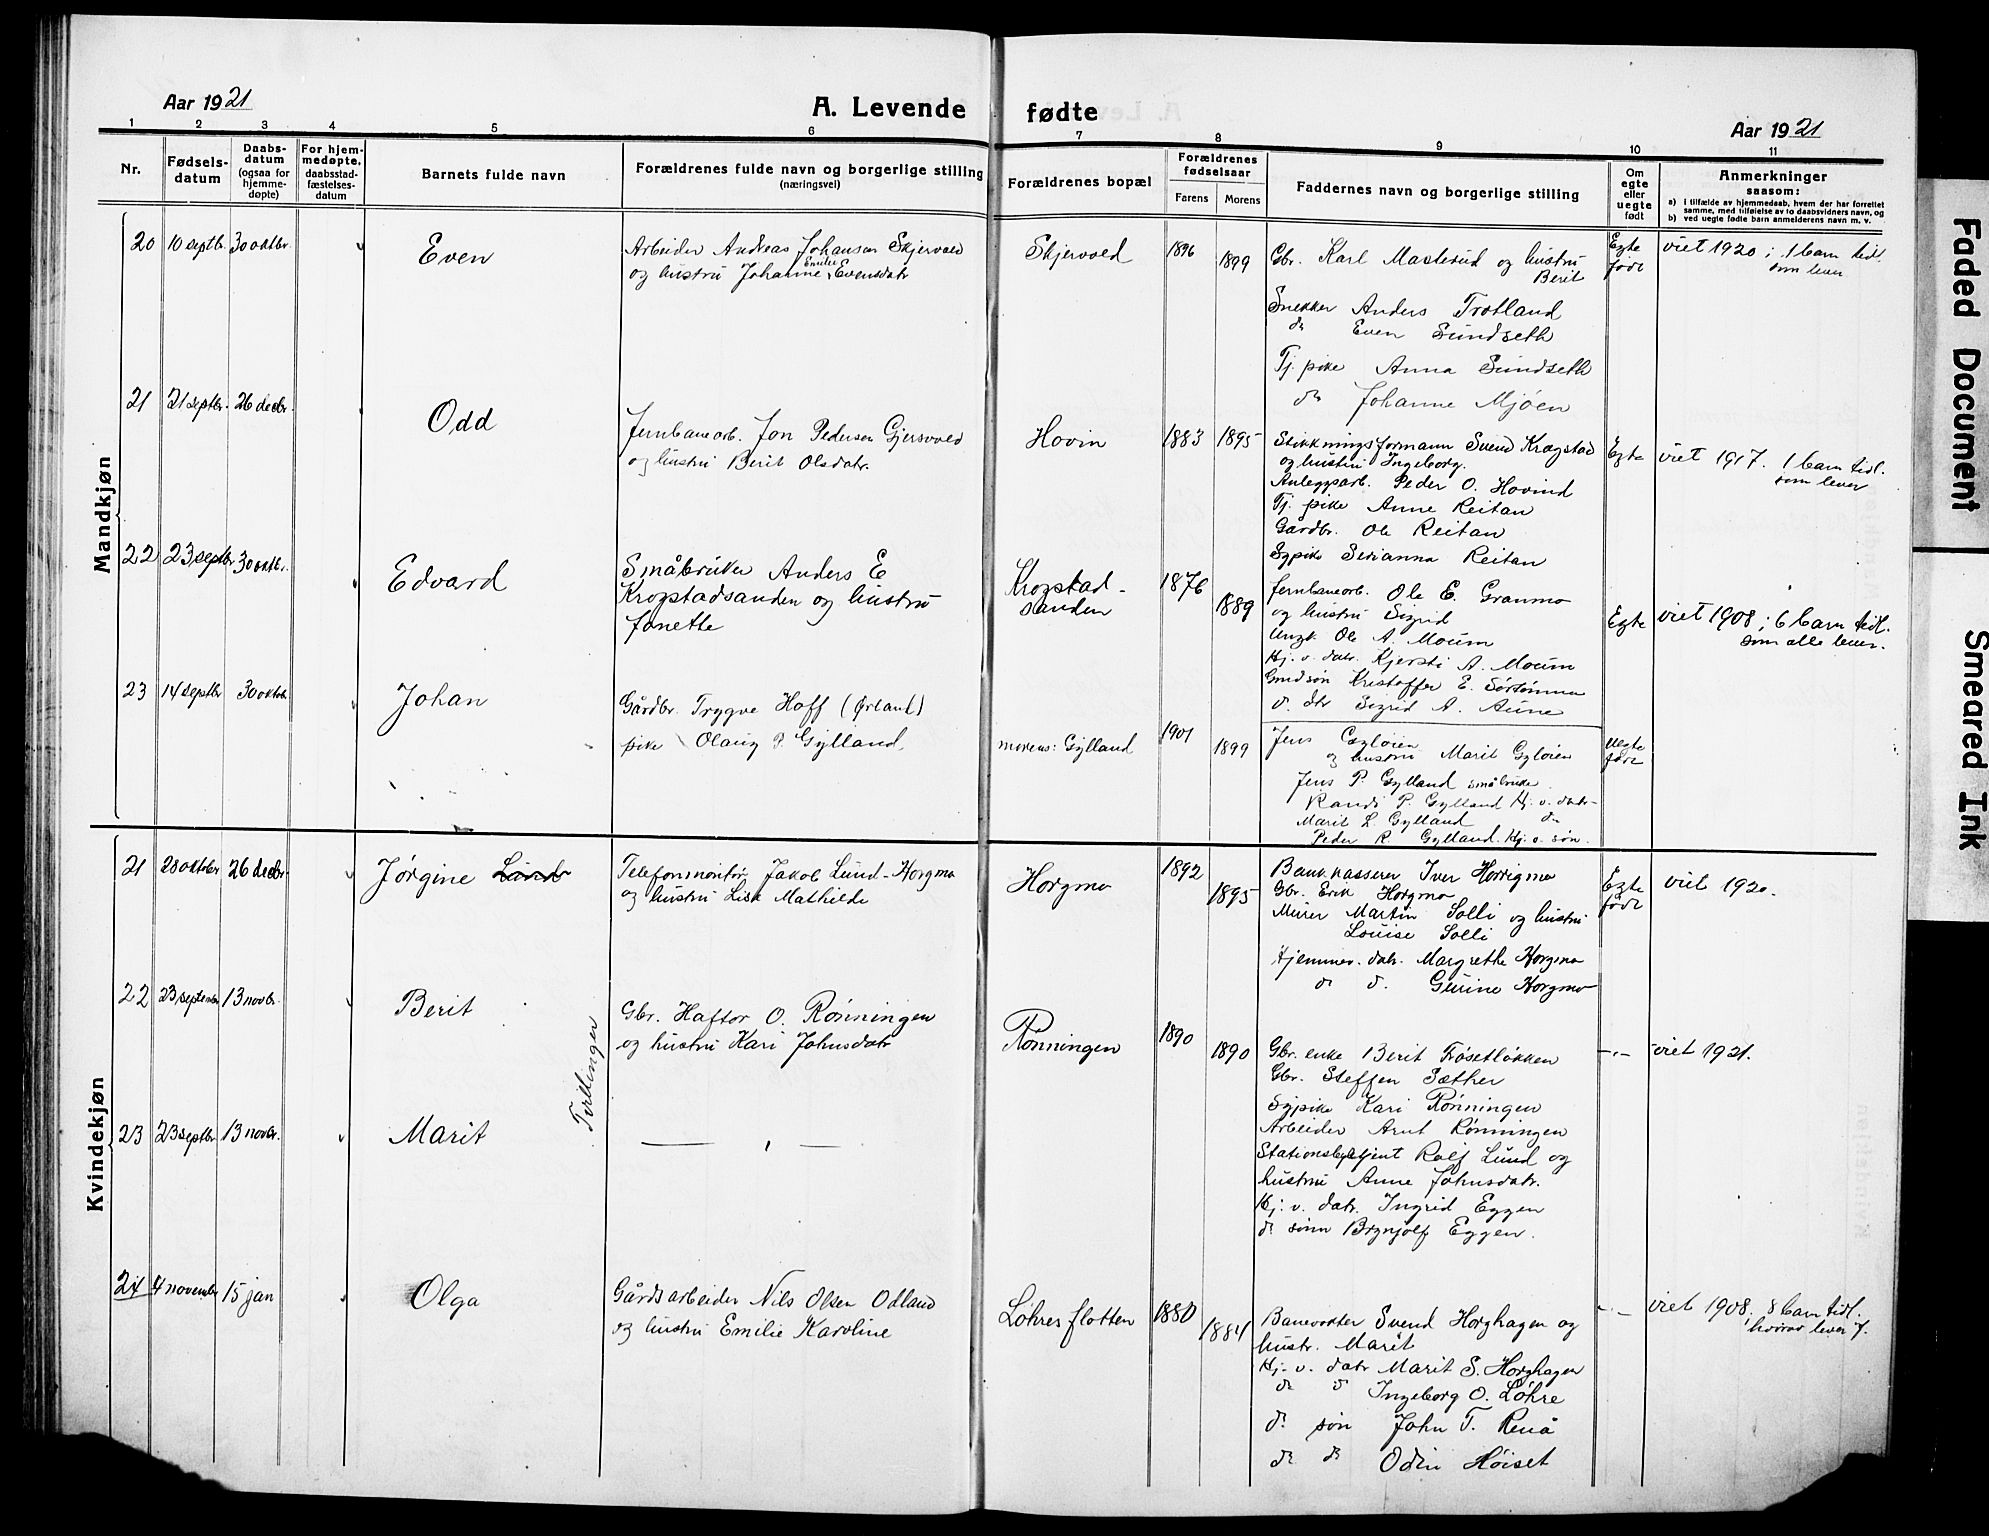 Aar 1921
A. Levende fødte
Aar 1921
1 2 3 4 5 6 7 8 9 10 11
Nr.
Fødsels-
datum
Daabs-
datum
(ogsaa for
hjemme-
døpte)
For hjem-
medøpte,
daabsstad-
fæstelses-
datum
Barnets fulde navn
Forældrenes fulde navn og borgerlige stilling
(næringsvei)
Forældrenes bopæl
Forældrenes
fødselsaar
Farens Morens
Faddernes navn og borgerlige stilling
Om
egte
eller
uegte
født
Anmerkninger
saasom:
a) i tilfælde av hjemmedaab, hvem der har forrettet
samme, med tilføielse av to daabsvidners navn, og
b) ved uegte fødte barn anmelderens navn m. v.
Mandkjøn
20 10 septbr. 30 oktbr. Even
Arbeider Andreas Johansen Skjervold
og hustru Johanne Emilie Evensdatr
Skjervold 1896 1899
Gbr. Karl Mastesud og hustru
Berit
Snekker Anders Trotland
do Even Sundseth
Tj. pike Anna Sundseth
do Johanne Mjøen
Egte
født
viet 1920; 1 barn tidl.
som lever
21 21 septbr. 26 decbr. Odd
Jernbanearb. Jon Pedersen Gjersvold
og hustru Berit Olsdatr.
Hovin 1883 1895
Stikkningsformann Svend Krogstad
og hustru Ingeborg.
Anleggsarb. Peder O. Hovind
Tj. pike Anne Reitan
Gårdbr. Ole Reitan
Sypike Serianna Reitan
Egte
viet 1917. 1 barn tidl.
som lever
22 23 septbr 30 oktbr. Edvard
Småbruker Anders E
Krogstadsanden og hustru
Jonette
Krogstad-
sanden
1876 1889
Jernbanearb. Ole E. Granmo
og hustru Sigrid
Ungk. Ole A. Moum
Hj. v. datr. Kjersti A. Moum
Grudsøn Kristoffer E. Sørtømme
d. dtr Sigrid A. Aune
Egte
viet 1908; 6 barn tidl.
som alle lever.
23 14 septbr 30 oktbr. Johan
Gårdbr. Trygve Hoff (Ørland)
pike Olaug P. Gylland
morens: Gylland 1901 1899
Jens Gyløien
og hustru Marit Gyløien
Jens P. Gylland småbruker
Randi P. Gylland Hj. v. datr-
Marit L. Gylland do
Peder R. Gylland. Hj. v. søn.
Uegte
født
Kvindekjøn
21 28 oktbr 26 decbr. Jørgine Lund
Telefonmontør Jakob Lund-Horgmo
og hustru Lisk Mathilde
Horgmo 1892 1895
Bankkasserer Iver Horrigmo
Gbr. Erik Horgmo
Murer Martin Solli og hustru
Louise Solli
Hjemmev. datr. Margrethe Horgmo
do d. Gurine Horgmo
Egte
født
viet 1920.
22 23 septembr 13 novbr. Berit
Tvillinger
Gbr. Haftor O. Rønningen
og hustru Kari Johnsdatr
Rønningen 1890 1890
Gbr. enke Berit Frøsetløkken
Gbr. Steffen Sæther
Sypike Kari Rønningen
Arbeider Arnt Rønningen
Stationsbetjent Rolf Lund og
hustru Anne Johnsdatr.
Hj. v. datr. Ingrid Eggen
do sønn Brynjolf Eggen.
-„-
viet 1921.
23 23 septbr 13 novbr. Marit
— „ —
24 4 novembr 15 jan Olga
Gårdsarbeider Nils Olsen Odland
og hustru Emilie Karoline
Løhresflotten 1880 1884
Banevokter Svend Horghagen og
hustr. Marit
Hj. v. datr Marit S. Horghagen
do d Ingeborg O. Løhre
d. søn John T. Renå
do do Odin Høiset
-„-
viet 1908. 8 barn tidl.
hvorav lever 7.
Faded Document
Smeared Ink